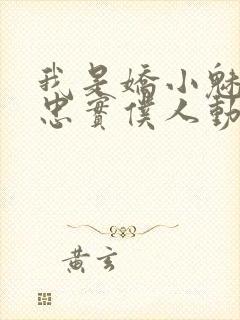 我是嬌小魅
忠實僕人動
黃玄